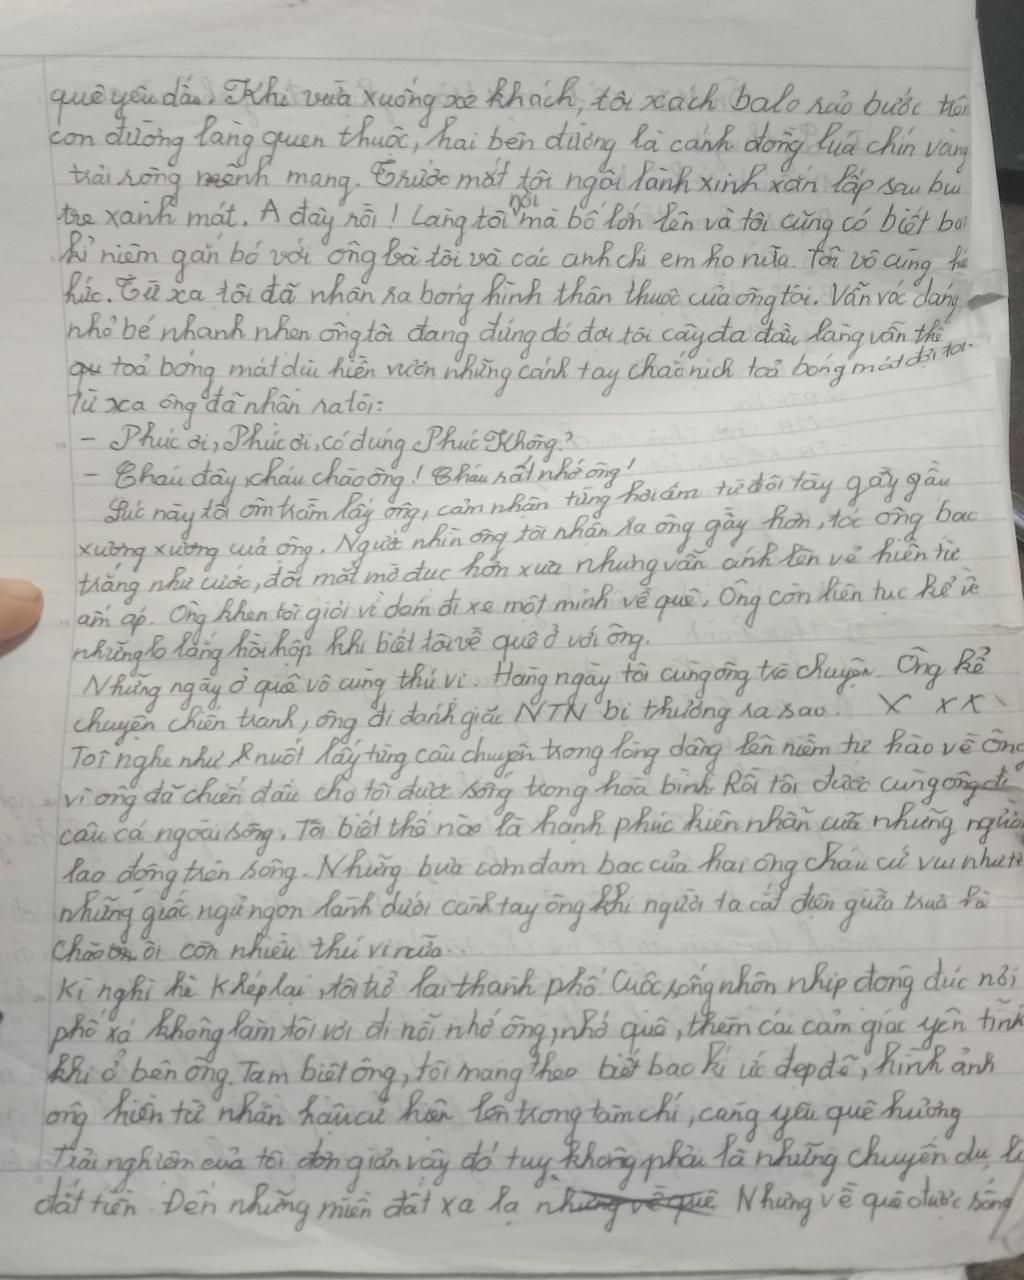 quê yêu dấu. Khi vừa xuống xe khách, tôi xách balo rảo bước trên
con đường làng quen thuộc, hai bên đường là cánh đồng lúa chín vàng
trải rộng mênh mang. Trước mắt tôi ngôi lành xinh xắn lấp sau bụi
tre xanh mát. A đây rồi! Làng tôi nơi mà bố lớn lên và tôi cũng có biết bao
kỉ niệm gắn bó với ông bà tôi và các anh chị em họ nữa. Tôi vô cùng há
hức. Từ xa tôi đã nhận ra bóng hình thân thuộc của ông tôi. Vẫn vóc dáng
nhỏ bé nhanh nhẹn ông tôi đang đứng đó đợi tôi cây đa đầu làng vẫn thế
toả bóng mát dịu hiền vườn những cánh tay chắc nịch toả bóng mát đợi tôi.
Từ xa ông đã nhận ra tôi:
- Phúc ơi, Phúc ơi, có đúng Phúc Không?
- Cháu đây, cháu chào ông! Cháu rất nhớ ông!
Lúc này tôi ôm trầm lấy ông, cảm nhận từng hơi ấm từ đôi tay gầy gầu
xương xương của ông. Ngước nhìn ông tôi nhận ra ông gầy hơn, tóc ông bạc
trắng như cước, đôi mắt mờ đục hơn xưa nhưng vẫn ánh lên vẻ hiền từ
ấm áp. Ông khen tôi giỏi vì dám đi xe một mình về quê. Ông còn liên tục kể về
những lo lắng hồi hộp khi biết tôi về quê ở với ông.
Những ngày ở quê vô cùng thú vị. Hàng ngày tôi cùng ông trò chuyện. Ông kể
chuyện chiến tranh, ông đi đánh giặc NTN bị thương ra sao. X X X
Tôi nghe như nuốt lấy từng câu chuyện trong lòng dâng lên niềm tự hào về ông
vì ông đã chiến đấu cho tôi được sống trong hoà bình. Rồi tôi được cùng ông đi
câu cá ngoài sông. Tôi biết thế nào là hạnh phúc kiên nhẫn của những người
lao động trên sông. Những bữa cơm đạm bạc của hai ông cháu cứ vui như tết
những giấc ngủ ngon lành dưới cánh tay ông khi người ta cắt điện giữa trưa hè
Chao ôi còn nhiều thú vị nữa...
Kì nghỉ hè Khép lại, tôi trở lại thành phố. Cuộc sống nhộn nhịp đông đúc nơi
phố xá không làm tôi vơi đi nỗi nhớ ông, nhớ quê, thèm cái cảm giác yên tĩnh
khi ở bên ông. Tạm biệt ông, tôi mang theo biết bao kí ức đẹp đẽ, hình ảnh
ông hiền từ nhân hậu cứ hiện lên trong tâm chí, càng yêu quê hương
Trải nghiệm của tôi đơn giản vậy đó tuy không phải là những chuyến du lị
đắt tiền. Đến những miền đất xa lạ nhưng về quê Nhưng về quê được sống